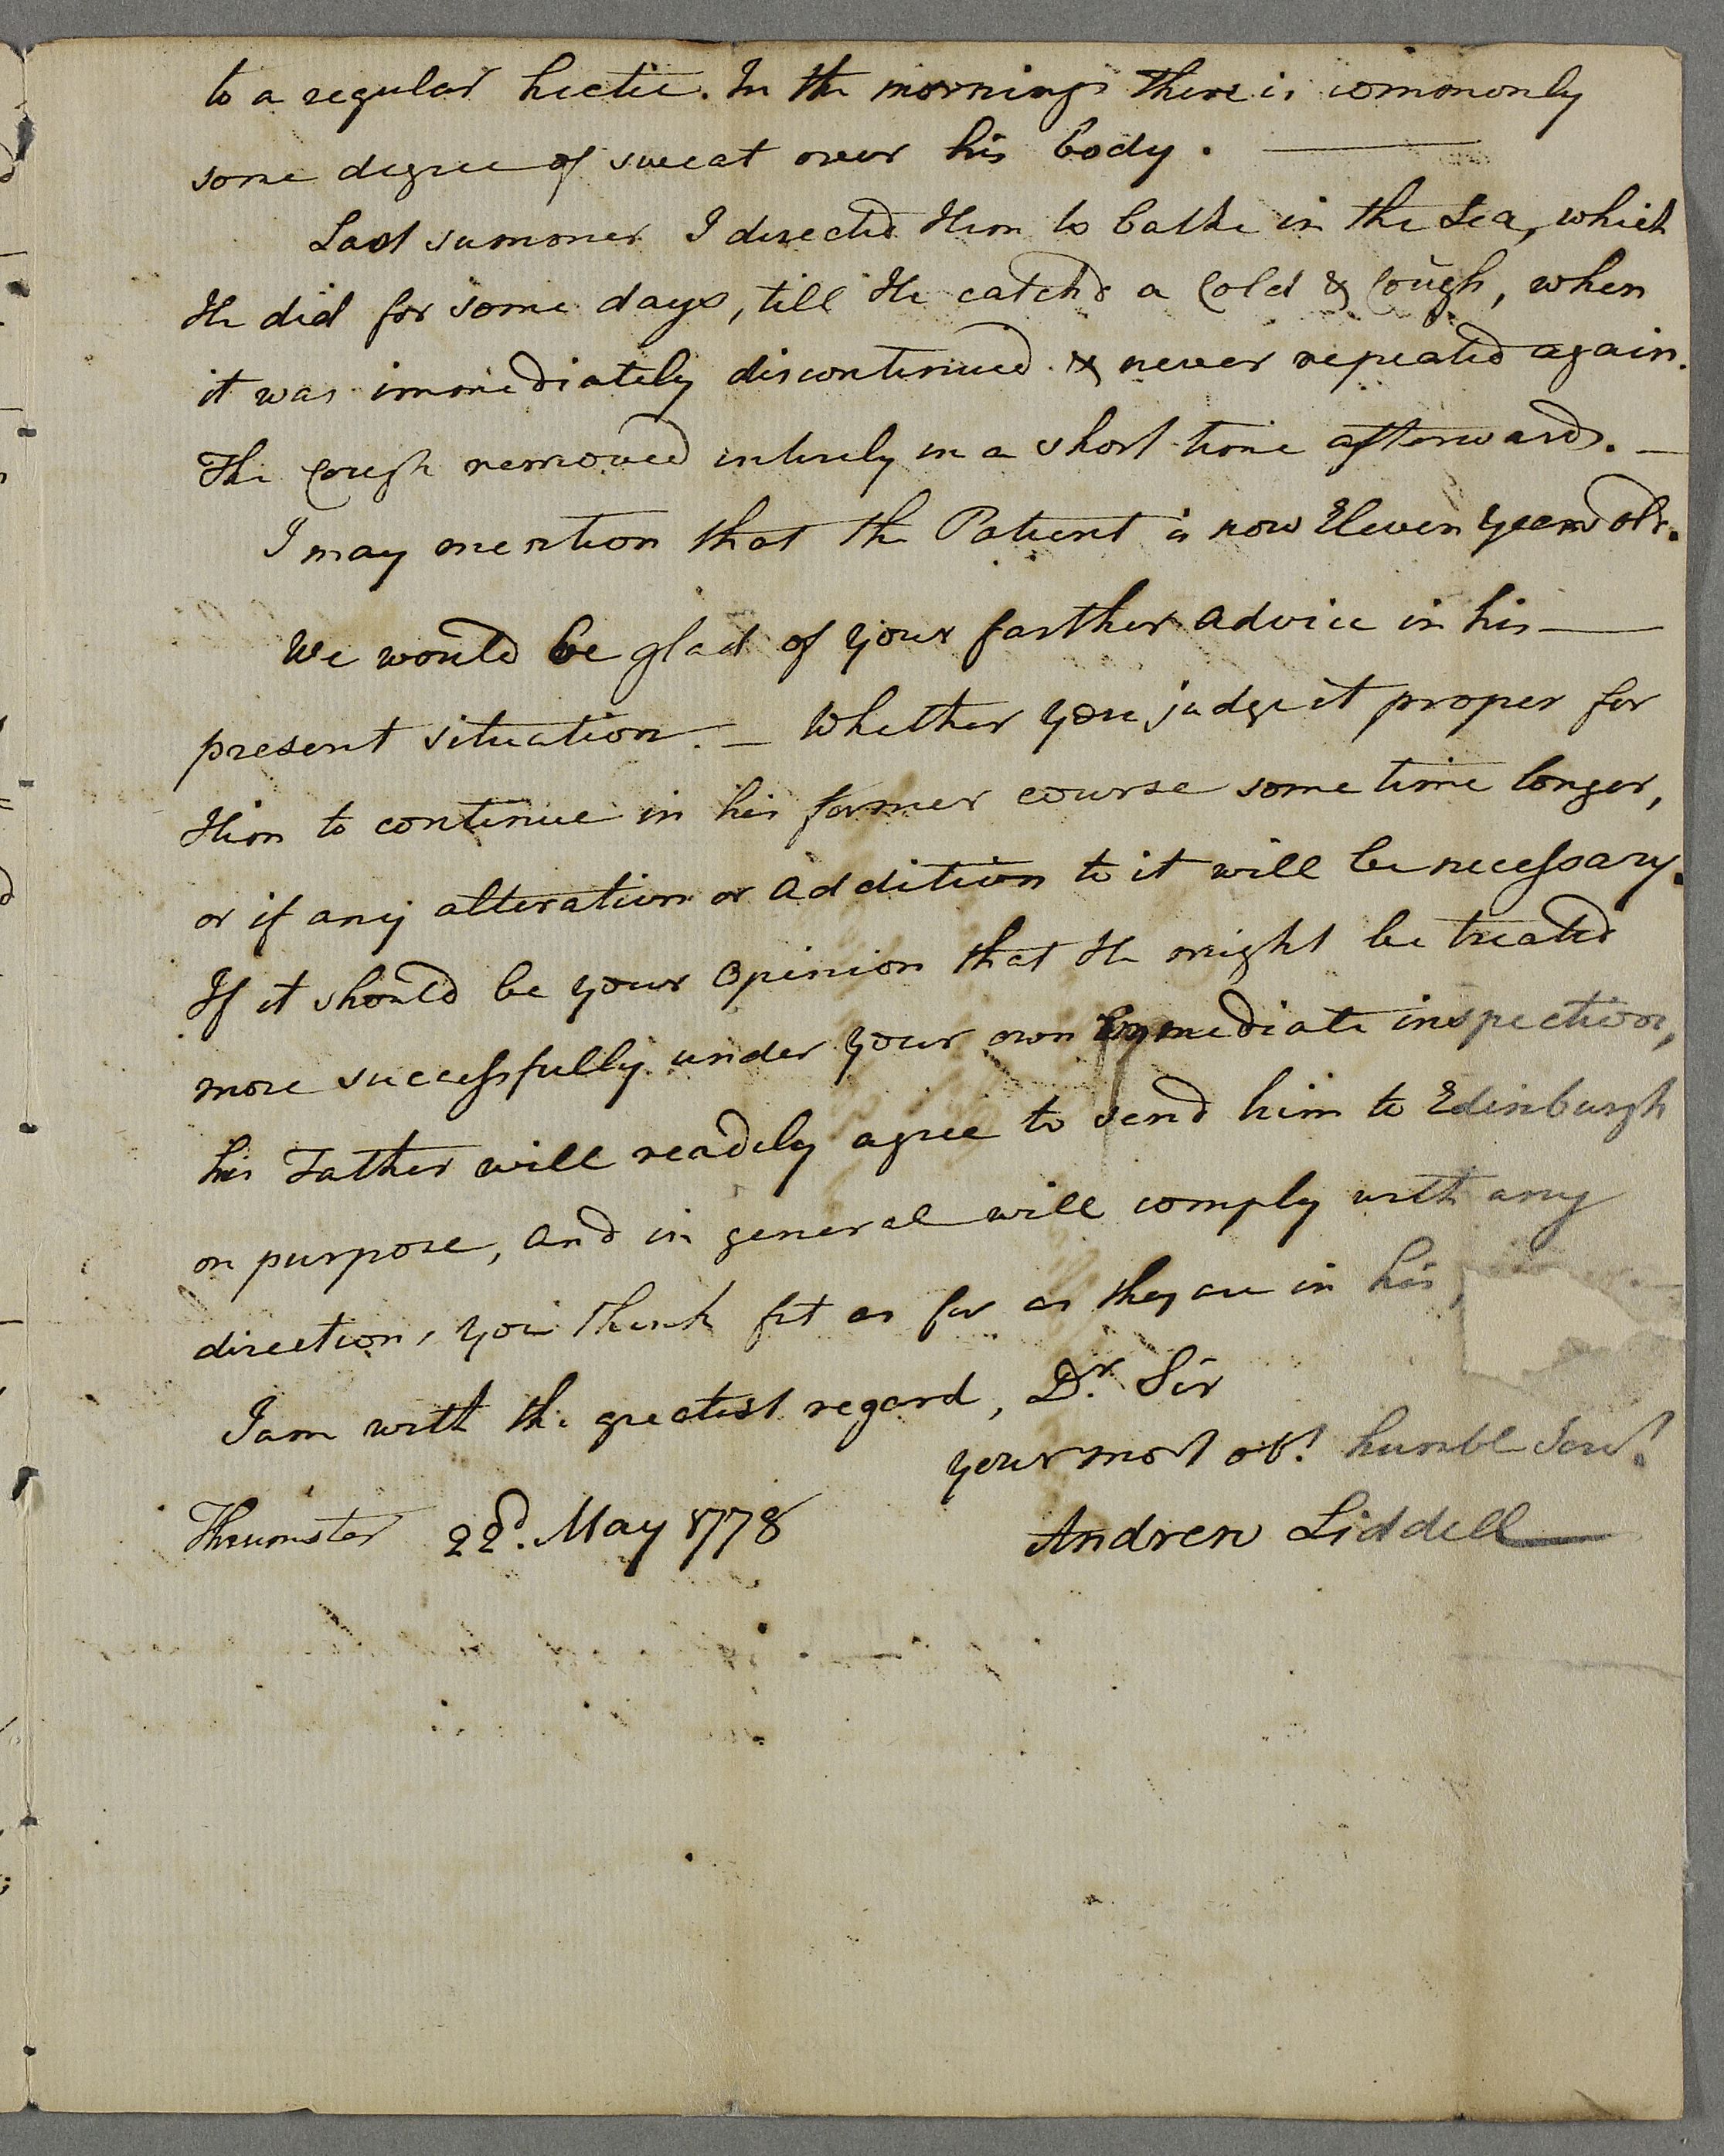 to a regular hectic. In the mornings there is commonly
some degree of sweat over his body. —
Last summer I directed Him to bathe in the Sea, which
He did for some days, till He catch'd a Cold & Cough, when
it was immediately discontinued & never repeated again.
The Cough removed intirely in a short time afterwards. —
I may mention that the Patient is now Eleven years old.
We would be glad of your farther advice in his —
present situation. — Whether you judge it proper for
Him to continue in his former course some time longer,
or if any alteration or addition to it will be necessary.
If it should be your Opinion that He might be treated
more successfully under your own immediate inspection,
his Father will readily agree to send him to Edinburgh
on purpose, and in general will comply with any
directions you think fit as far as they are in his
I am with the greatest regard, Dr. Sir
your most obt. humbl Servt.
Thrumster 22d. May 1778 Andrew Liddell